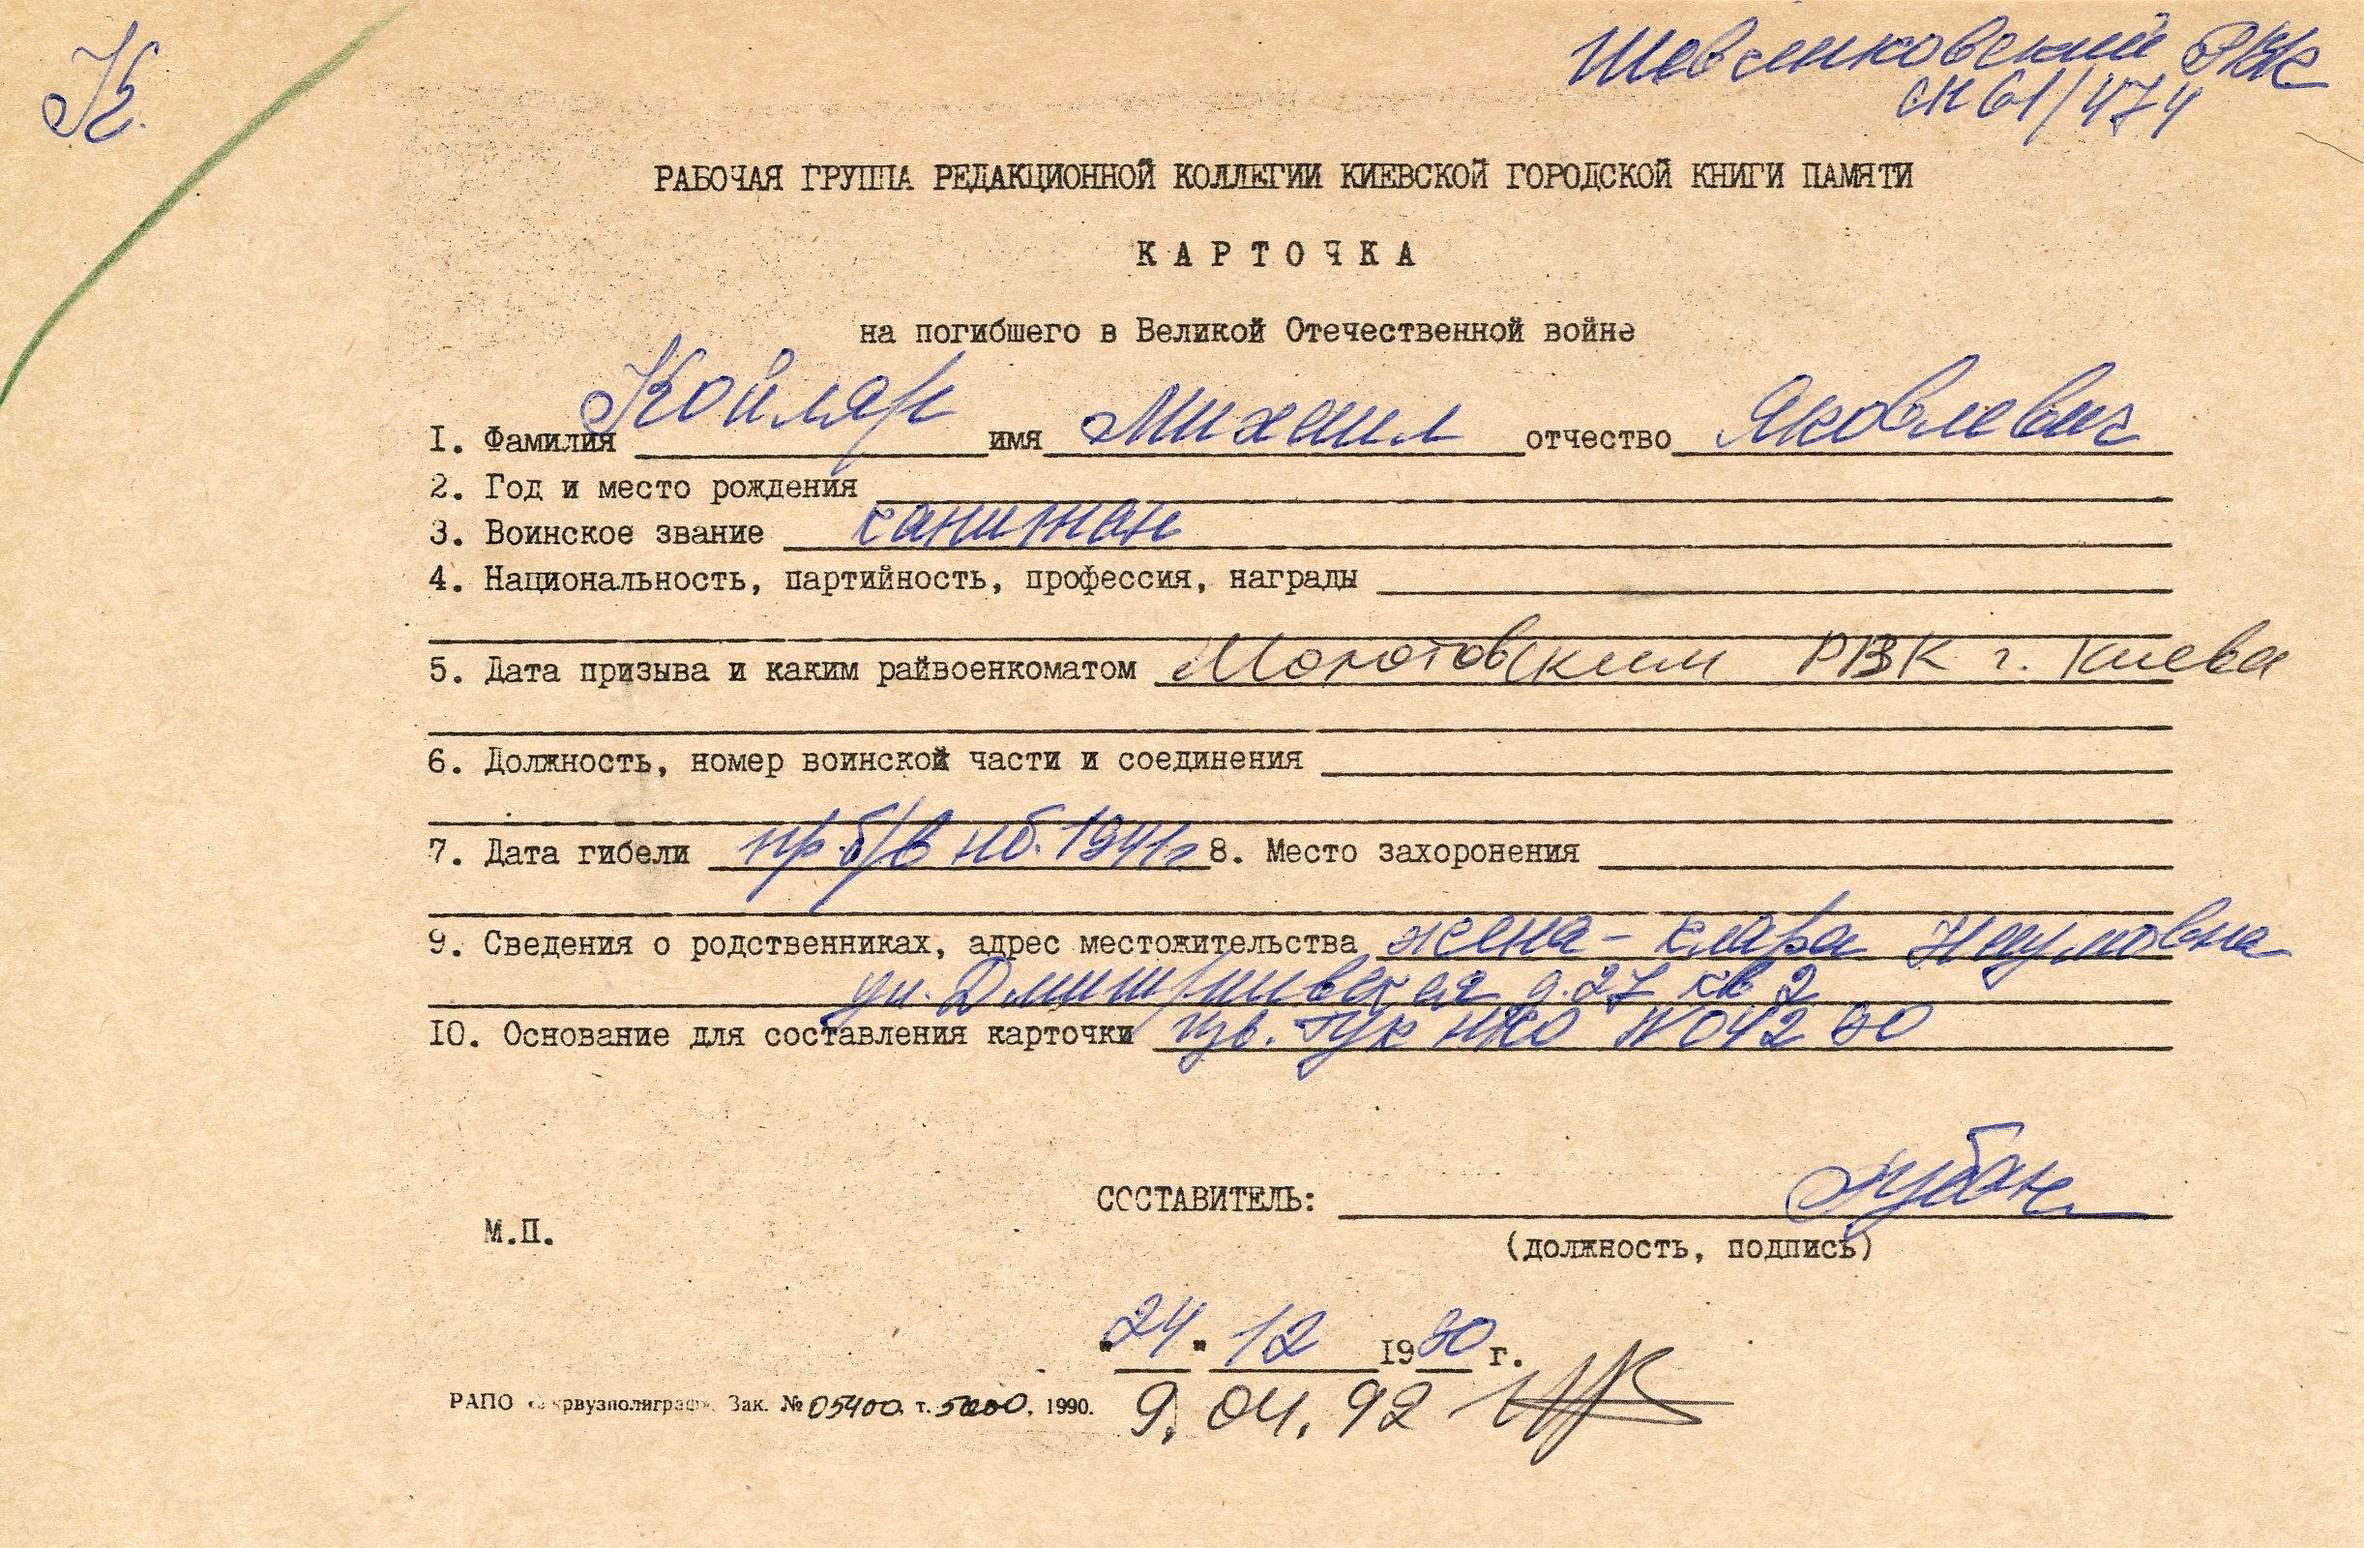 К.
Шевченковский РВК
сп 61/474
РАБОЧАЯ ГРУППА РЕДАКЦИОННОЙ КОЛЛЕГИИ КИЕВСКОЙ ГОРОДСКОЙ КНИГИ ПАМЯТИ
КАРТОЧКА
на погибшего в Великой Отечественной войне
1. Фамилия Койляр имя Михаил отчество Яковлевич
2. Год и место рождения
3. Воинское звание капитан
4. Национальность, партийность, профессия, награды
5. Дата призыва и каким райвоенкоматом Молотовским РВК г. Киева
6. Должность, номер воинской части и соединения
7. Дата гибели пр. б/в нб. 1941г 8. Место захоронения
9. Сведения о родственниках, адрес местожительства жена - Клара Наумовна
ул. Дмитриевская д. 27 кв 2
10. Основание для составления карточки изв. ГУК НКО №04290
СОСТАВИТЕЛЬ:
М.П.
(должность, подпись)
"24" 12 1990 г.
РАПО «Укрвузполиграф» Зак. № 05400, т. 5000, 1990.
9.04.92